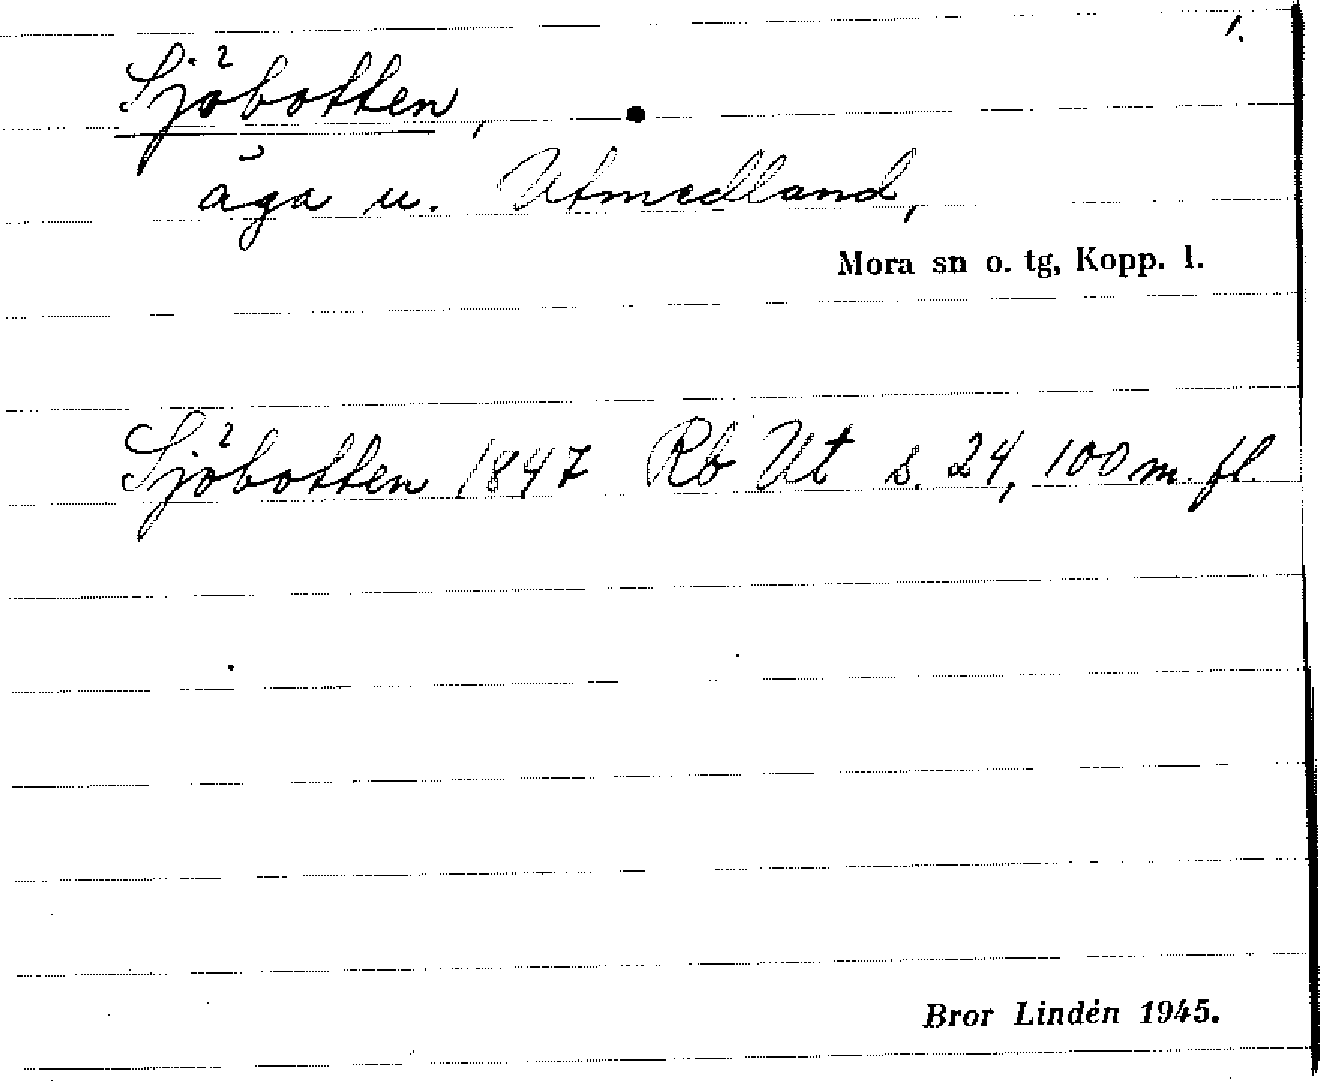 1.
Sjöbotten,
äga u. Utmedland,
Mora sn o. tg, Kopp. l.
Sjöbotten 1847 Rb Ut s. 24, 100 m. fl.
Bror Lindén 1945.